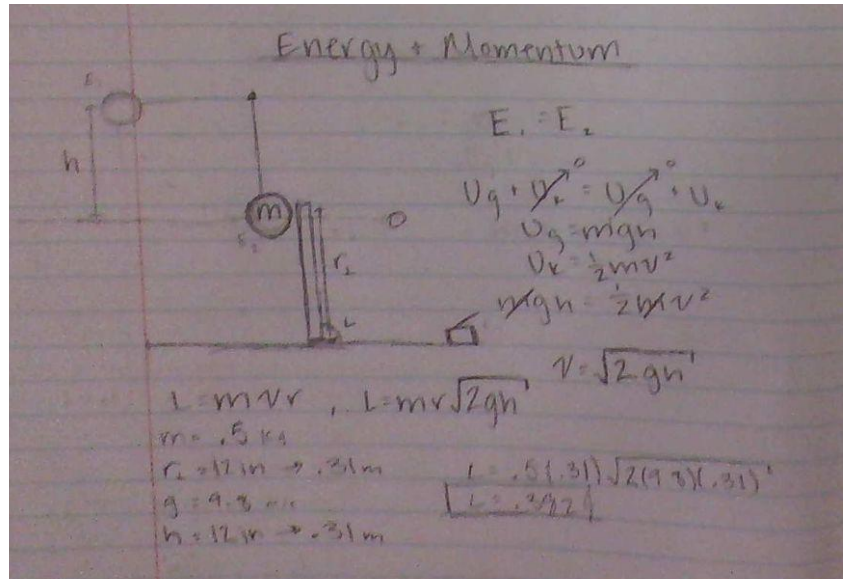 Energy + Momentum
E₁
h
m
E₂
r₂
L
E₁ = E₂
Ug + Uₖ⁰ = Ug⁰ + Uₖ
Ug = mgh
Uₖ = ½mv²
mgh = ½mv²
v = √2gh
L = mvr , L = mr√2gh
m = .5 kg
r₂ = 12 in → .31m
g = 9.8
h = 12 in → .31m
L = .5(.31)√2(9.8)(.31)